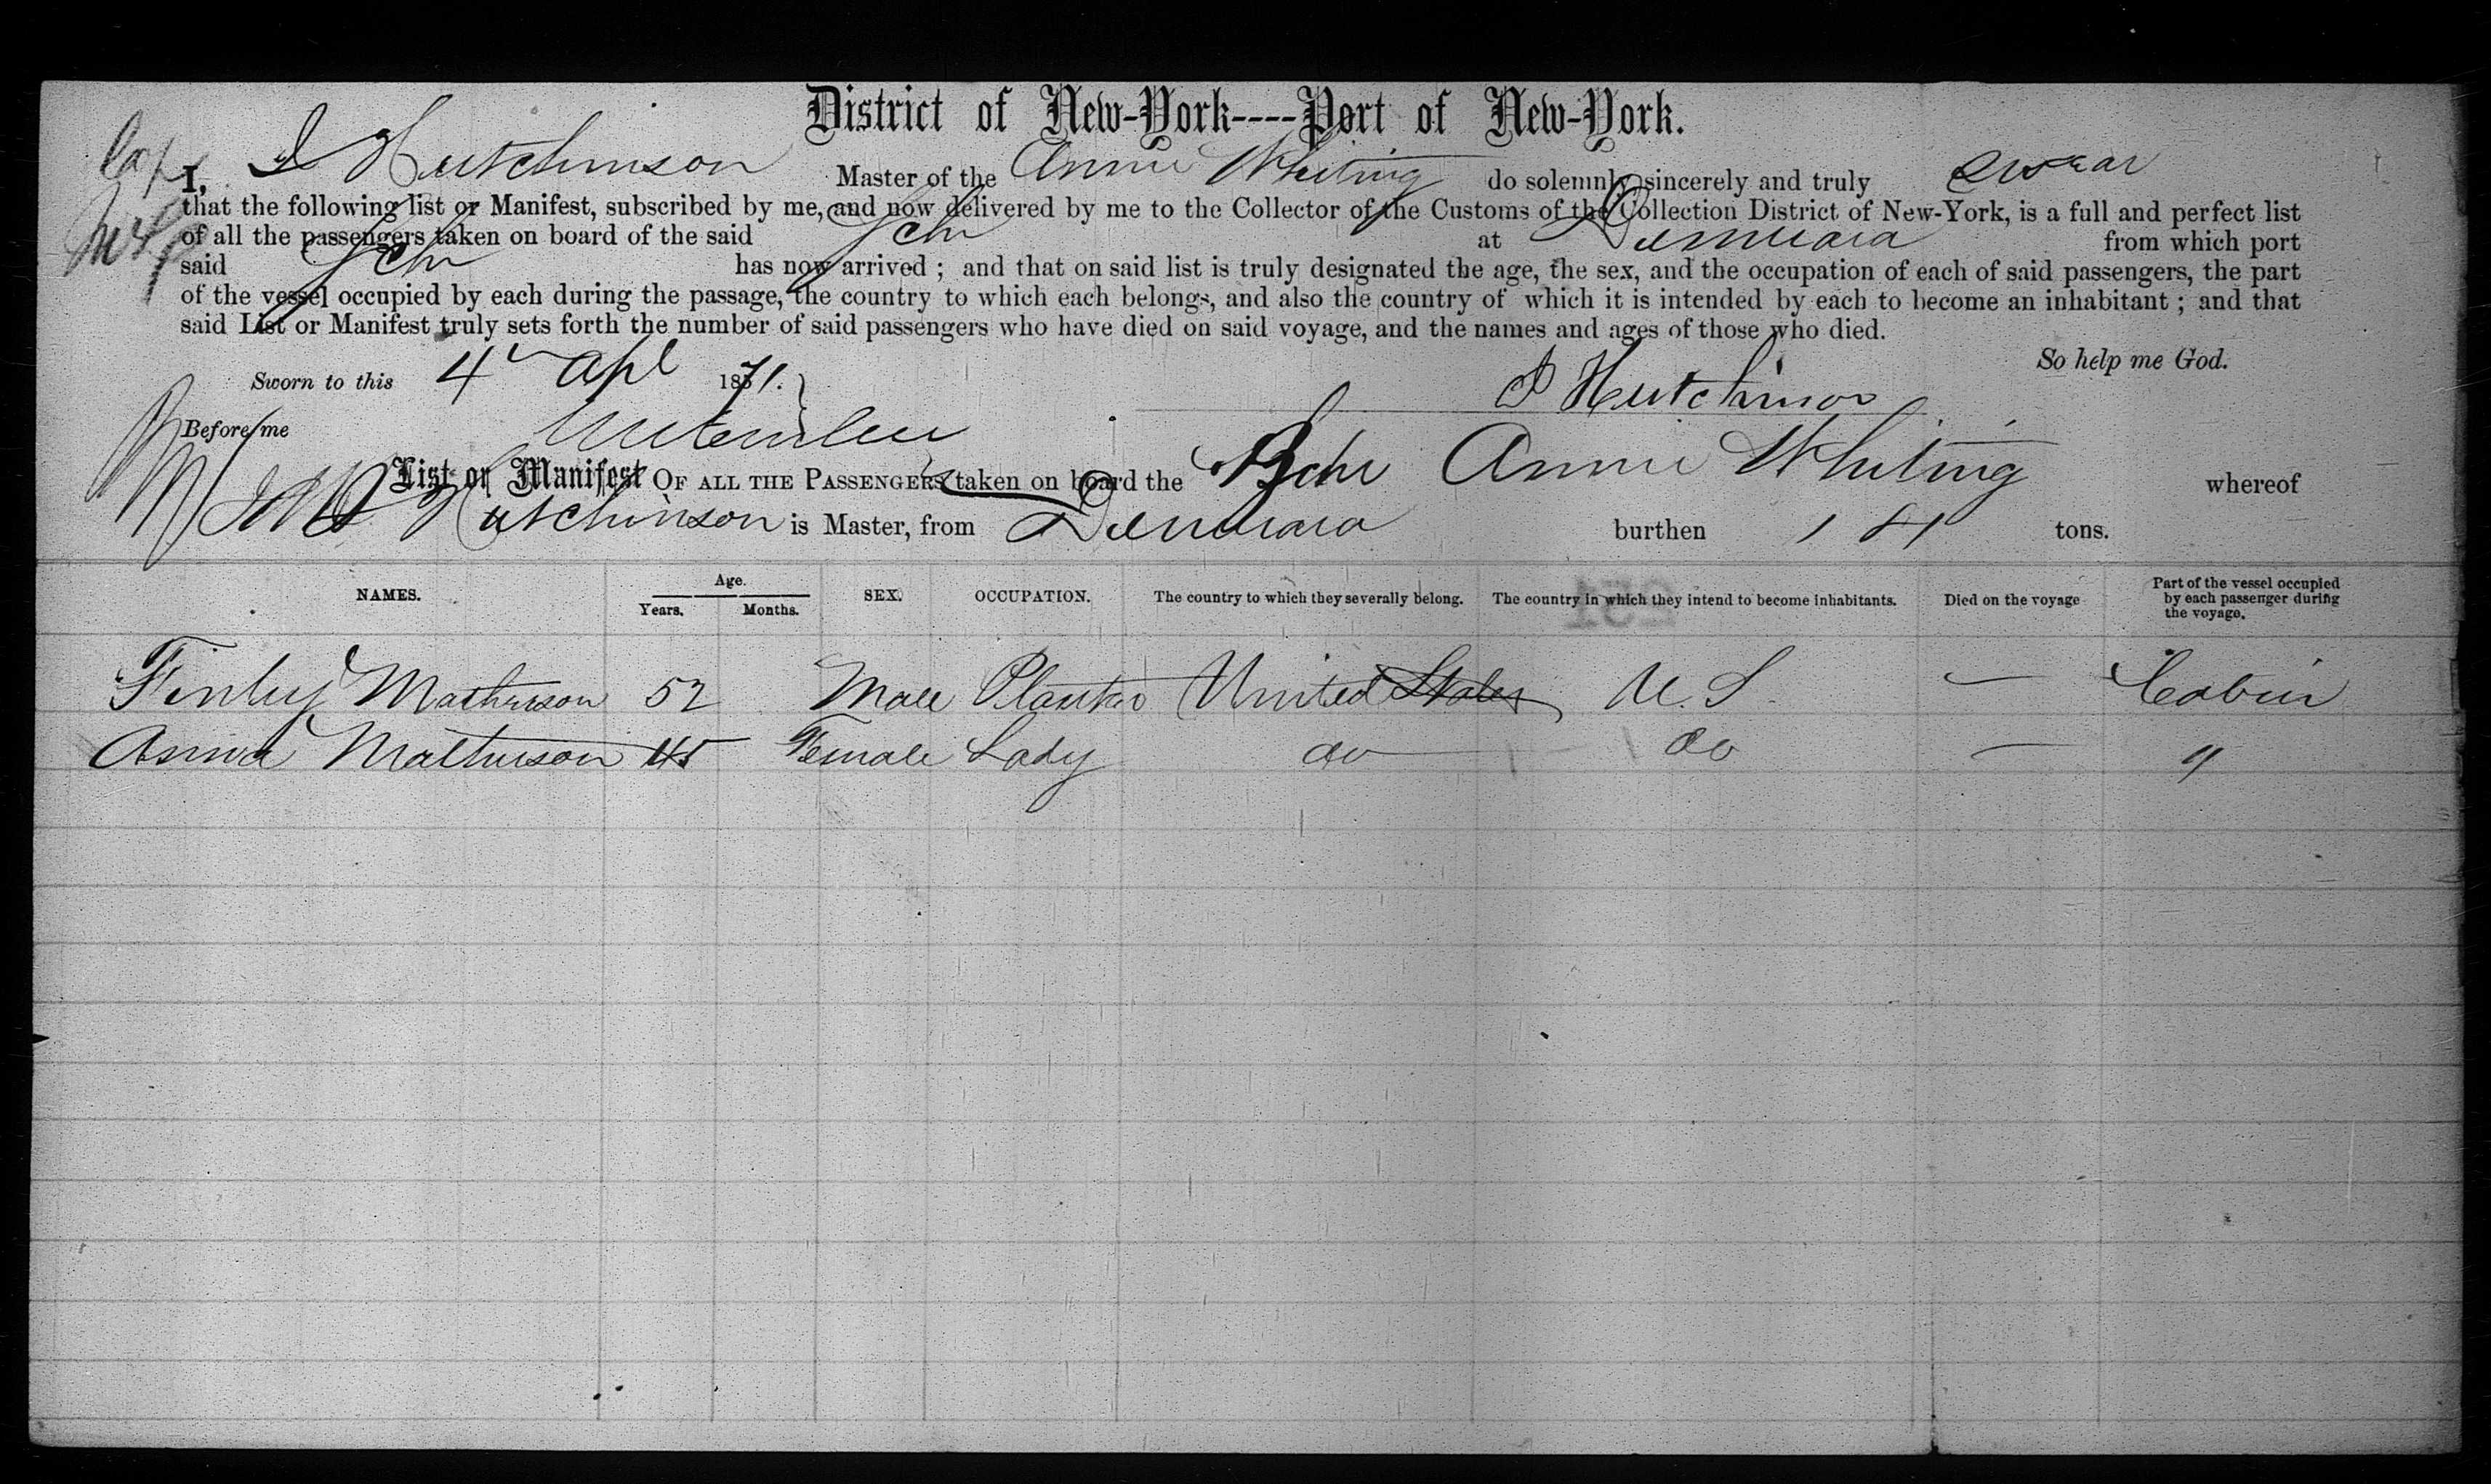 District of New-York----Port of New-York.
I, J Hutchinson Master of the Annie Whiting do solemnly, sincerely and truly swear
that the following list or Manifest, subscribed by me, and now delivered by me to the Collector of the Customs of the Collection District of New-York, is a full and perfect list
of all the passengers taken on board of the said Schr at Demerara from which port
said Schr has now arrived ; and that on said list is truly designated the age, the sex, and the occupation of each of said passengers, the part
of the vessel occupied by each during the passage, the country to which each belongs, and also the country of which it is intended by each to become an inhabitant ; and that
said List or Manifest truly sets forth the number of said passengers who have died on said voyage, and the names and ages of those who died.
So help me God.
Sworn to this 4 Apl 1871.
J Hutchinson
Before me
List or Manifest OF ALL THE PASSENGERS taken on board the Schr Annie Whiting whereof
Hutchinson is Master, from Demerara burthen 181 tons.
NAMES. Age. Years. Months. SEX. OCCUPATION. The country to which they severally belong. The country in which they intend to become inhabitants. Died on the voyage Part of the vessel occupied by each passenger during the voyage.
Finley Mathewson 52 Male Planter United States U. S. — Cabin
Anna Mathewson 45 Female Lady do do — "